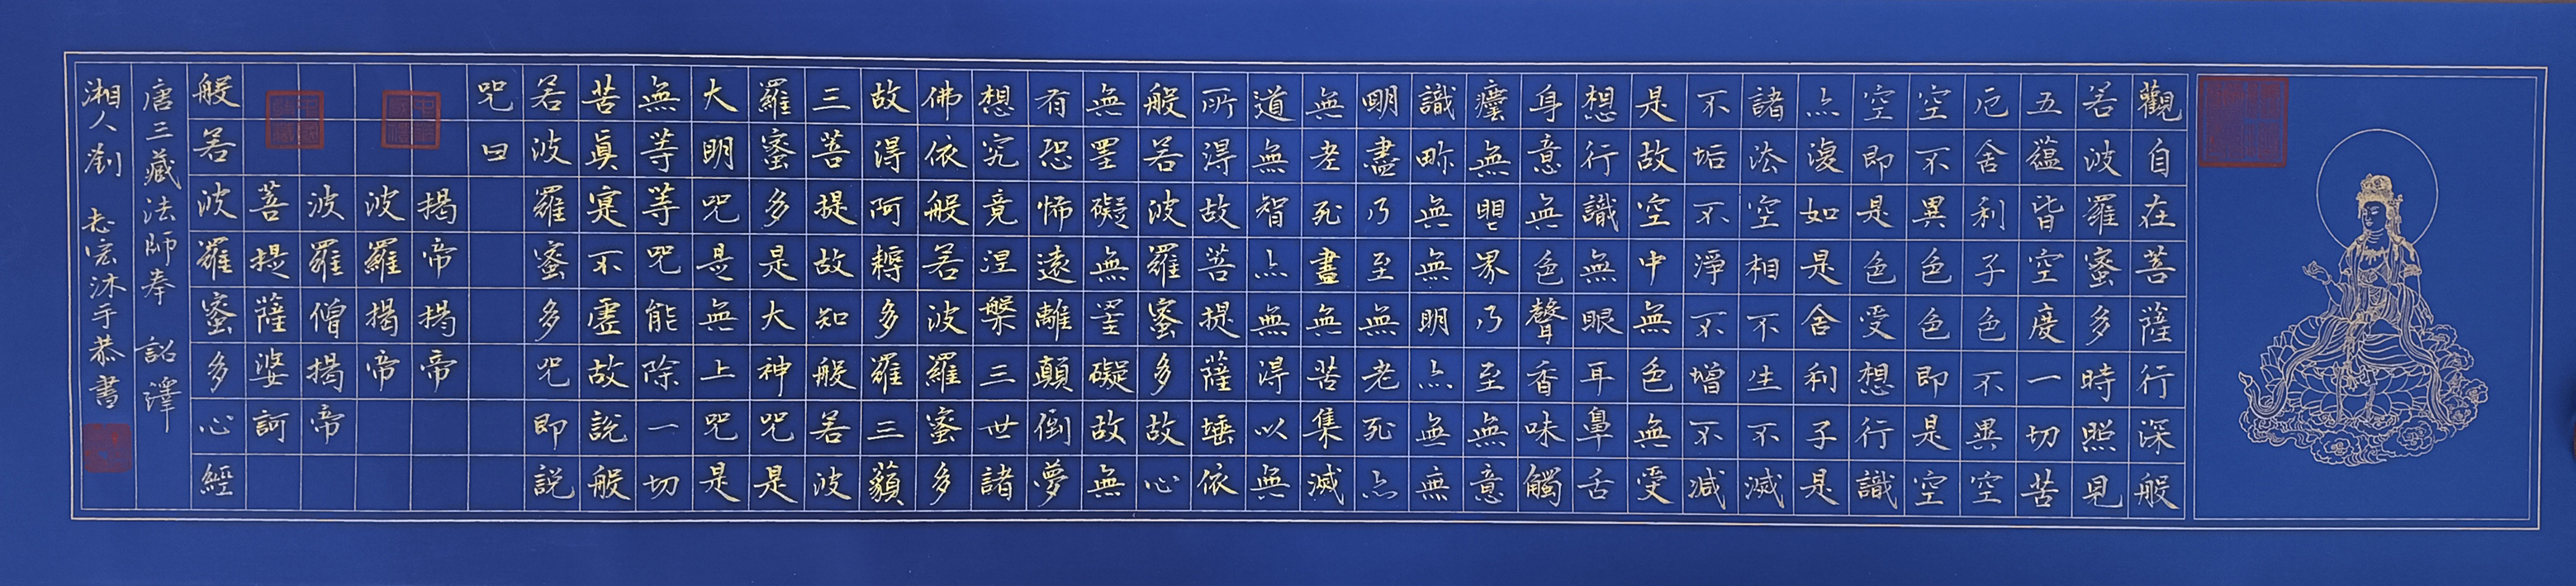 觀自在菩薩行深般
若波羅蜜多時照見
五蘊皆空度一切苦
厄舍利子色不異空
空不異色色即是空
空即是色受想行識
亦復如是舍利子是
諸法空相不生不滅
不垢不淨不增不減
是故空中無色無受
想行識無眼耳鼻舌
身意無色聲香味觸
塵無眼界乃至無意
識界無無明亦無無
明盡乃至無老死亦
無老死盡無苦集滅
道無智亦無得以無
所得故菩提薩埵依
般若波羅蜜多故心
無罣礙無罣礙故無
有恐怖遠離顛倒夢
想究竟涅槃三世諸
佛依般若波羅蜜多
故得阿耨多羅三藐
三菩提故知般若波
羅蜜多是大神咒是
大明咒是無上咒是
無等等咒能除一切
苦真實不虛故說般
若波羅蜜多咒即說
咒曰
揭帝揭帝
波羅揭帝
波羅僧揭帝
菩提薩婆訶
般若波羅蜜多心經
唐三藏法師奉 詔譯
湘人劉 志宏沐手恭書